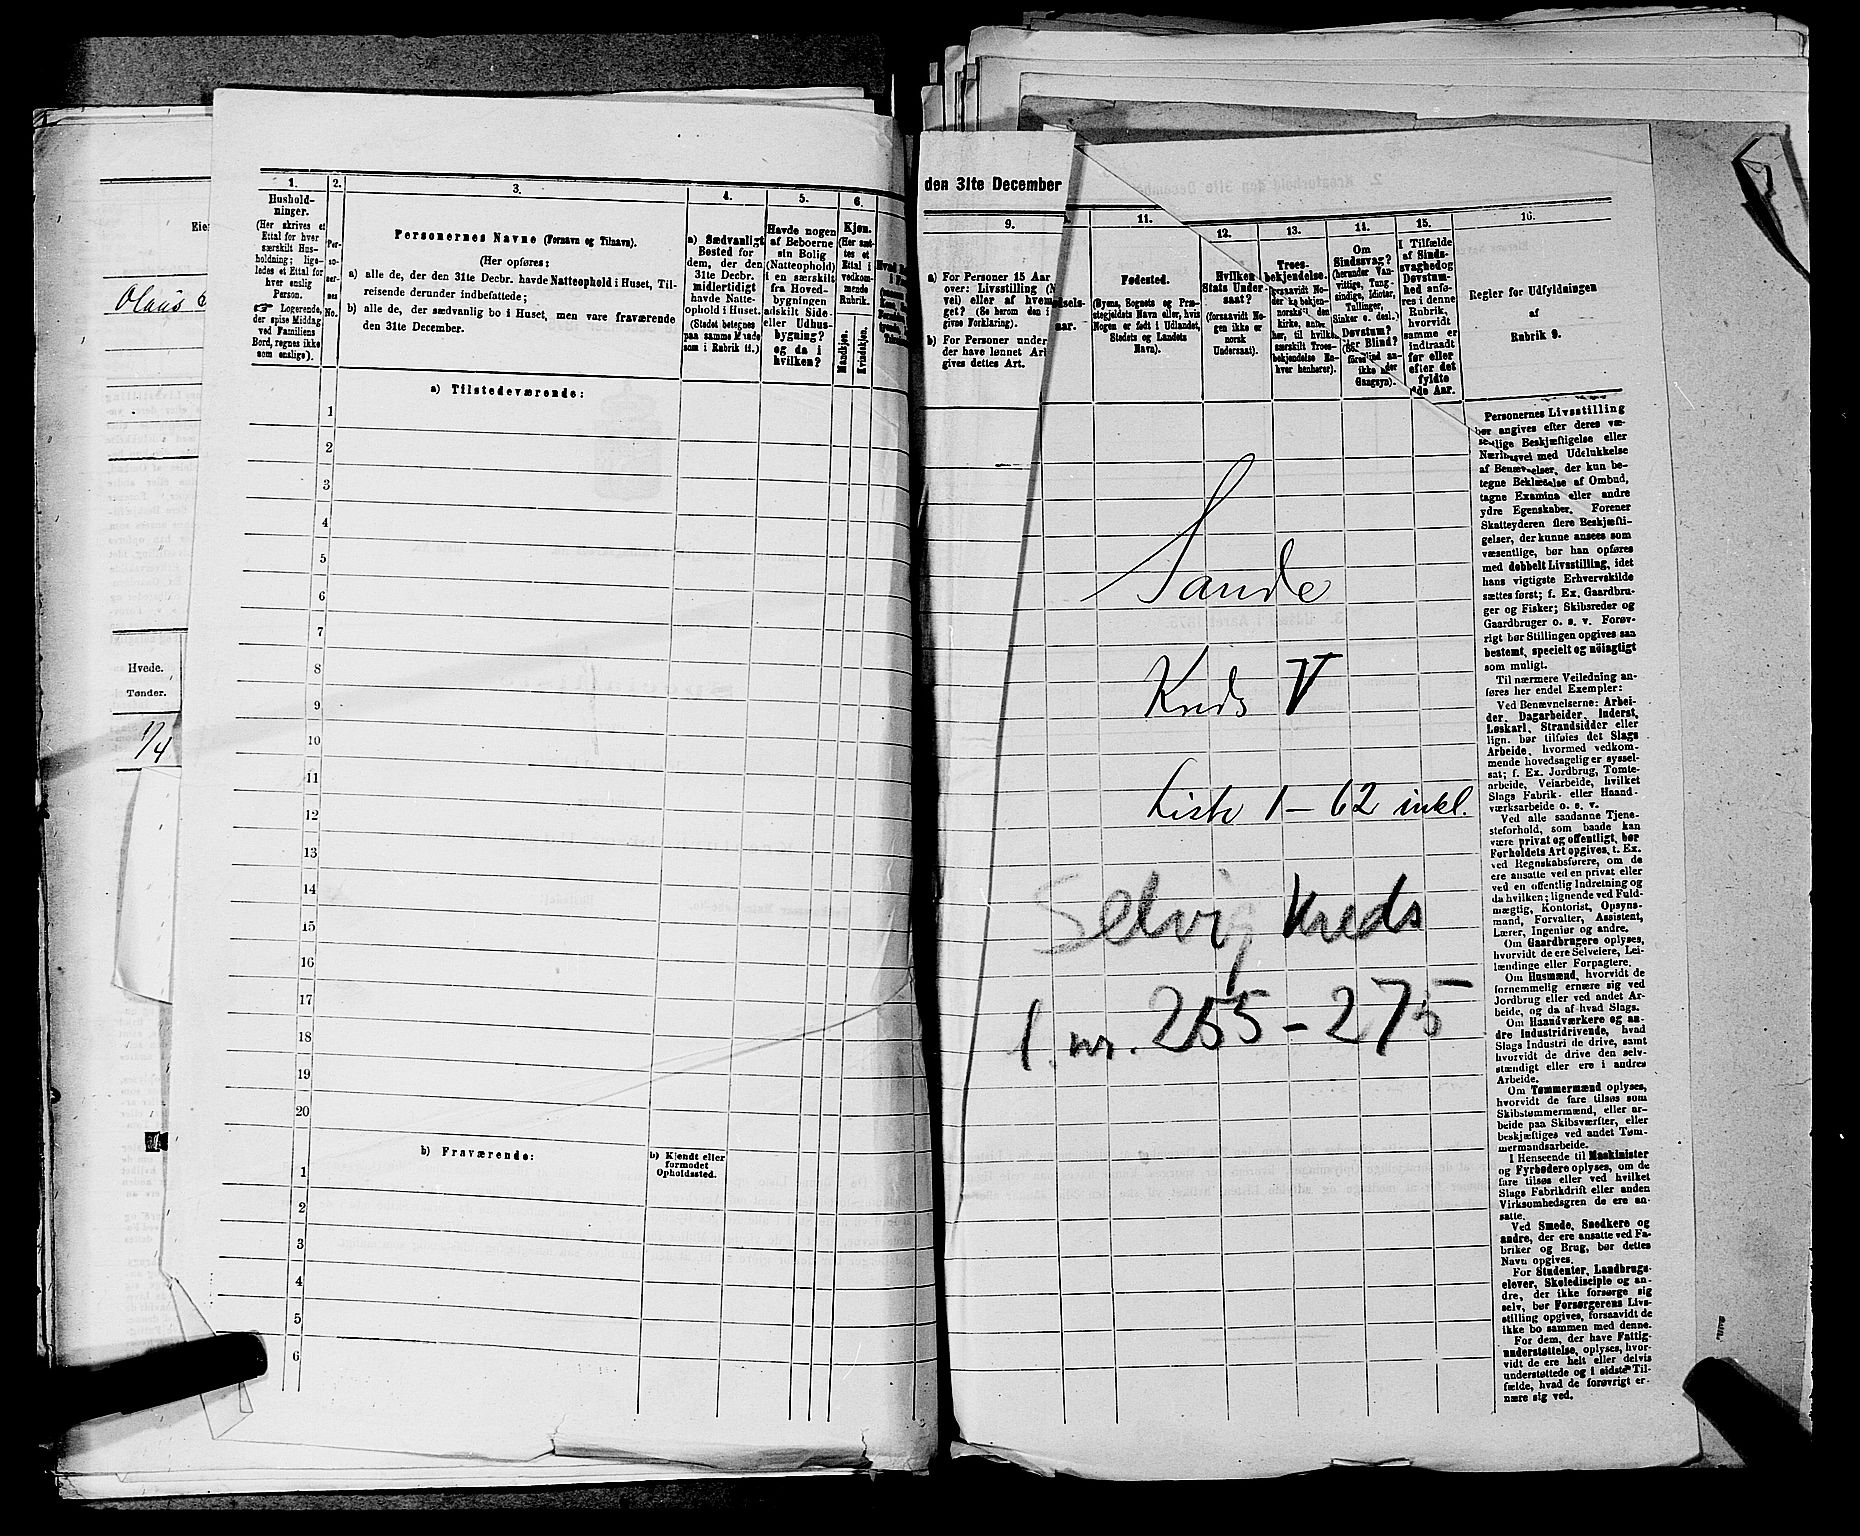 Eie
Olaus
Hvede.
Tønder.
1/4
1.
Hushold-
ninger.
(Her skrives et
Ettal for hver
særskilt Hus-
holdning; lige-
ledes et Ettal for
hver enslig
Person.
☞ Logerende,
der spise Middag
ved Familiens
Bord, regnes ikke
som enslige).
2.
Per-
so-
ner-
nes
No.
3.
Personernes Navne (Fornavn og Tilnavn).
(Her opføres:
a) alle de, der den 31te Decbr. havde Natteophold i Huset, Til-
reisende derunder indbefattede;
b) alle de, der sædvanlig bo i Huset, men vare fraværende
den 31te December.
4.
a) Sædvanligt
Bosted for
dem, der den
31te Decbr.
midlertidigt
havde Natte-
ophold i Huset.
(Stedet betegnes
paa samme Maade
som i Rubrik 11.)
5.
Havde nogen
af Beboerne
sin Bolig
(Natteophold)
i en særskilt
fra Hoved-
bygningen
adskilt Side-
eller Udhus-
bygning?
og da i
hvilken?
6.
Kjøn.
(Her sæt-
tes et
Ettal i
vedkom-
mende
Rubrik.
Mandkjøn.
Kvindekjøn.
a) Tilstedeværende:
1
2
3
4
5
6
7
8
9
10
11
12
13
14
15
16
17
18
19
20
b) Fraværende:
b) Kjendt eller
formodet
Opholdssted.
1
2
3
4
5
6
den 31te December
9.
a) For Personer 15 Aar
over: Livsstilling (N
vei) eller af hvem
get? (Se herom den i
givne Forklaring).
b) For Personer under
der have lønnet Ar
gives dettes Art.
dsels-
aar.
11.
Fødested.
(Byens, Sognets og Præ-
stegjeldets Navn eller, hvis
Nogen er født i Udlandet,
Stedets og Landets
Navn).
12.
Hvilken
Stats Under-
saat?
(forsaavidt No-
gen ikke er
norsk
Undersaat).
13.
Troes-
bekjendelse.
14.
Om
Sindssvag?
(herunder Van-
vittige, Tung-
sindige, Idioter,
Tullinger,
Sinker o. desl.)
Døvstum?
15.
I Tilfælde
af Sinds-
svaghed og
Døvstum-
hed anfø-
res i denne
Rubrik,
hvorvidt
samme er
indtraadt
før eller
efter det
fyldte
4de Aar.
16.
Regler for Udfyldningen
af
Rubrik 9.
Personernes Livsstilling
bør angives efter deres væ-
sentlige Beskjæftigelse eller
Næringsvei med Udelukkelse
af Benævnelser, der kun be-
tegne Beklædelse af Ombud,
tagne Examina eller andre
ydre Egenskaber. Forener
Skatteyderen flere Beskjæfti-
gelser, der kunne ansees som
væsentlige, bør han opføres
med dobbelt Livsstilling, idet
hans vigtigste Erhvervskilde
sættes først; f. Ex. Gaardbru-
ger og Fisker; Skibsreder og
Gaardbruger o. s. v. Forøv-
rigt bør Stillingen opgives saa
bestemt, specielt og nøiagtigt
som muligt.
Til nærmere Veiledning an-
føres her endel Exempler:
Ved Benævnelserne: Arbei-
der, Dagarbeider, Inderst,
Løskarl, Strandsidder eller
lign. bør tilføies det Slags
Arbeide, hvormed vedkom-
mende hovedsagelig er syssel-
sat; f. Ex. Jordbrug, Tomte-
arbeide, Veiarbeide, hvilket
Slags Fabrik- eller Haand-
værksarbeide o. s. v.
Ved alle saadanne Tjene-
steforhold, som baade kan
være privat og offentligt, bør
Forholdets Art opgives, t. Ex.
ved Regnskabsførere, om de
ere ansatte ved en privat eller
ved en offentlig Indretning og
da hvilken; lignende ved Fuld-
mægtig, Kontorist, Opsyns-
mand, Forvalter, Assistent,
Lærer, Ingeniør og andre.
Om Gaardbrugere oplyses,
hvorvidt de ere Selveiere, Lei-
lændinge eller Forpagtere.
Om Husmænd, hvorvidt de
fornemmelig ernære sig ved
Jordbrug eller ved andet Ar-
beide, og da af hvad Slags.
Om Haandværkere og an-
dre Industridrivende, hvad
Slags Industri de drive, samt
hvorvidt de drive den selv-
stændigt eller ere i andres
Arbeide.
Om Tømmermænd oplyses,
hvorvidt de fare tilsøs som
Skibstømmermænd, eller ar-
beide paa Skibsværfter, eller
beskjæftiges ved andet Tøm-
mermandsarbeide.
I Henseende til Maskinister
og Fyrbødere oplyses, om de
fare tilsøs eller ved hvilket
Slags Fabrikdrift eller anden
Virksomhedsgren de ere an-
satte.
Ved Smede, Snedkere og
andre, der ere ansatte ved Fa-
briker og Brug, bør dettes
Navn opgives.
For Studenter, Landbrugs-
elever, Skoledisciple og an-
dre, der ikke forsørge sig
selv, bør Forsørgerens Livs-
stilling opgives, forsaavidt de
ikke bo sammen med denne.
For dem, der have Fattig-
understøttelse, oplyses, hvor-
vidt de ere helt eller delvis
understøttede og i sidste Til-
fælde, hvad de forøvrigt er-
nære sig ved.
Sande
Kreds V
Liste 1 – 62 inkl.
Selvig Kreds
l. nr. 255 – 275